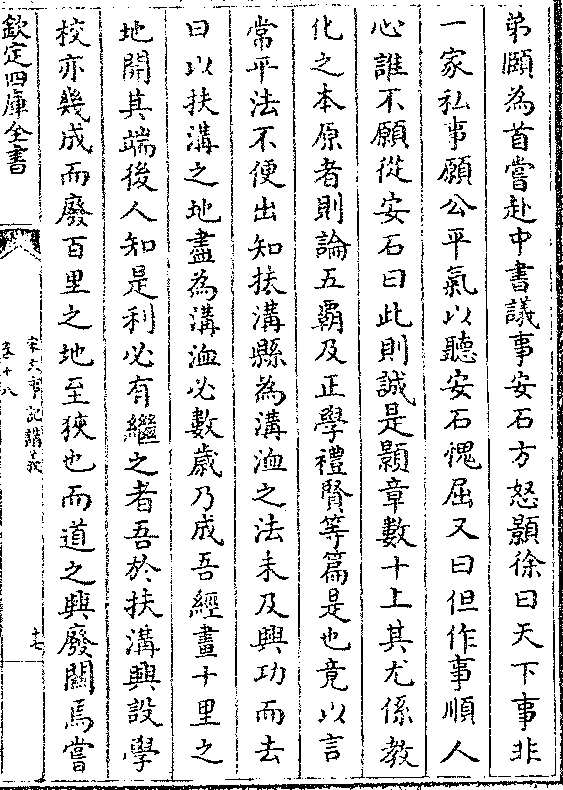 弟頤為首嘗赴中書議事安石方怒顥徐曰天下事非
一家私事願公平氣以聽安石愧屈又曰但作事順人
心誰不願從安石曰此則誠是顥章數十上其尤係教
化之本原者則論五霸及正學禮賢等篇是也竟以言
常平法不便出知扶溝縣為溝洫之法未及興功而去
曰以扶溝之地盡為溝洫必數歲乃成吾經畫十里之
地開其端後人知是利必有繼之者吾於扶溝興設學
校亦幾成而廢百里之地至狹也而道之興廢關焉嘗
欽定四庫全書
宋大事記講義
卷十八
十七